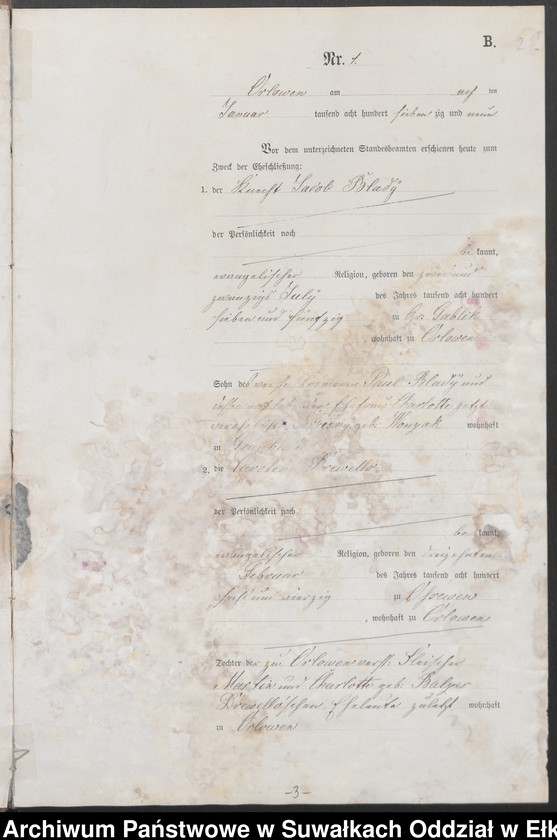 B.
Nr. 1.
Orlowen am acht ten
Januar tausend acht hundert sieben zig und neun
Vor dem unterzeichneten Standesbeamten erschienen heute zum
Zweck der Eheschließung:
1. der Knecht Jacob Blady
der Persönlichkeit nach
be kannt,
evangelischer Religion, geboren den zwei und
zwanzigs July des Jahres tausend acht hundert
sieben und fünfzig zu Gr. Gablick
wohnhaft zu Orlowen
Sohn des Paul Blady und
Ehefrau Charlotte jetzt
geb. Wonzak wohnhaft
zu
2. die
der Persönlichkeit nach
be kannt,
evangelischer Religion, geboren den dreizehnten
Februar des Jahres tausend acht hundert
sechs und vierzig zu Orlowen
, wohnhaft zu Orlowen
Tochter der zu Orlowen verst. Fleischer
Martin und Charlotte geb. Balzer
Eheleute zuletzt wohnhaft
zu Orlowen
-3-
Archiwum Państwowe w Suwałkach Oddział w Ełk